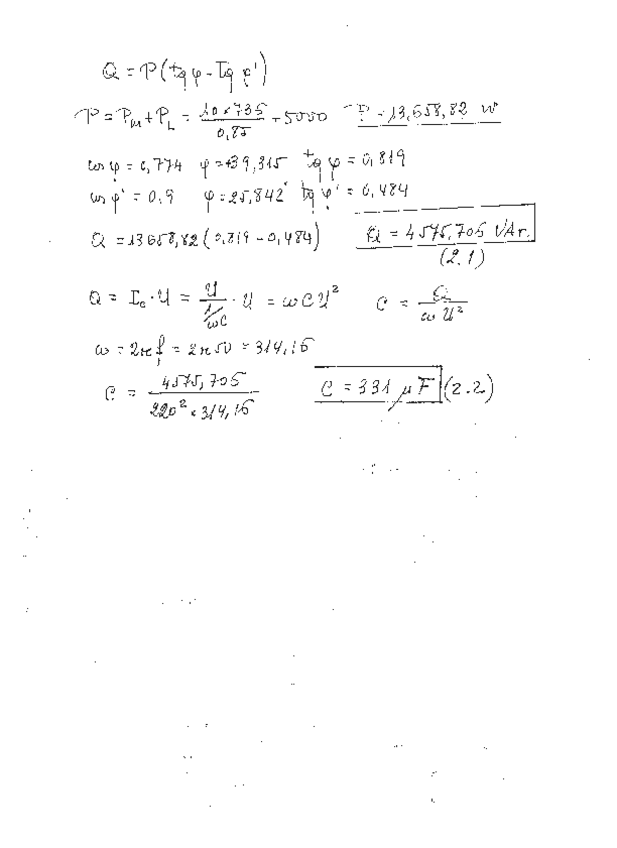 Q = P(tg φ - Tg φ')
P = P_M + P_L = 10 × 735 / 0,85 + 5000 P = 13,658,82 W
cos φ = 0,774 φ = 39,315 tg φ = 0,819
cos φ' = 0.9 φ = 25,842° tg φ' = 0,484
Q = 13658,82 (0,819 - 0,484) Q = 4575,705 VAr.
(2.1)
Q = I_c · U = U / (1/ωC) · U = ωCU² C = Q / ωU²
ω = 2πf = 2π50 = 314,16
C = 4575,705 / 220² × 314,16 C = 331 μF (2.2)